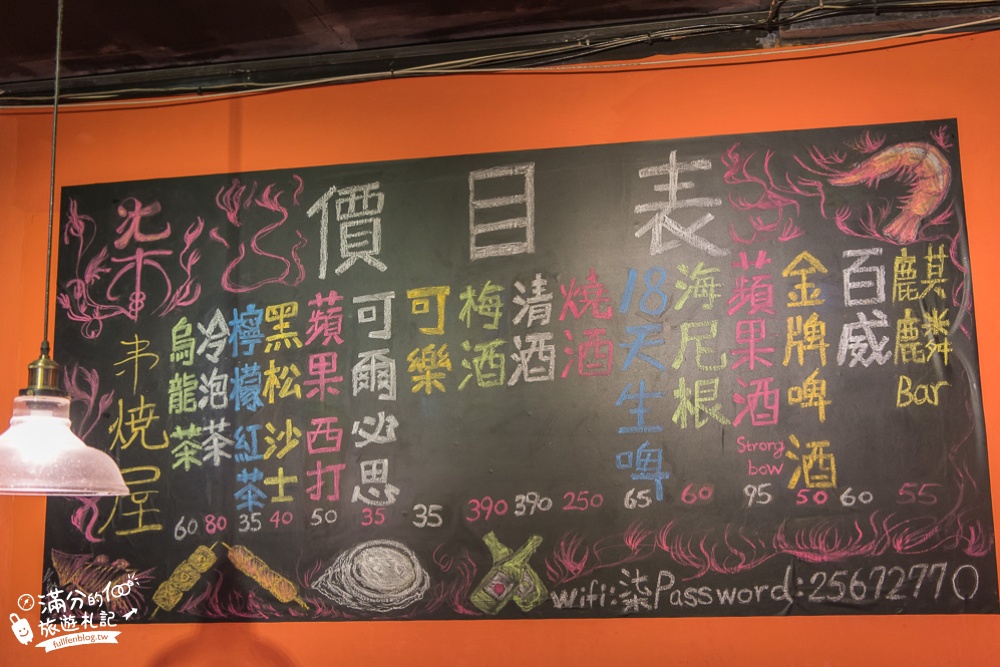 價目表
柒
串燒屋
麒麟Bar 55
百威 60
金牌啤酒 50
蘋果酒 Strongbow 95
海尼根 60
18天生啤 65
燒酒 250
清酒 390
梅酒 390
可樂 35
可爾必思 35
蘋果西打 50
黑松沙士 40
檸檬紅茶 35
冷泡茶 80
烏龍茶 60
wifi:柒Password:25672770
滿分的100
旅遊札記
fullfenblog.tw